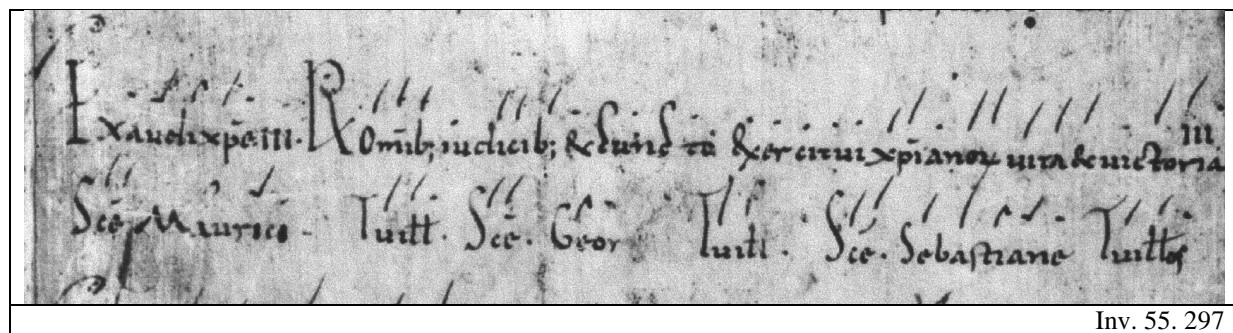 Exaudi xp̄e III. R Om̄ib; iudicib; & cunc to exercitui xp̄ianoꝝ uita & uictoria III
Sc̄e Maurici. Tu ill. Sc̄e. Geor Tu ill. Sc̄e. Sebastiane Tu illos
Inv. 55. 297